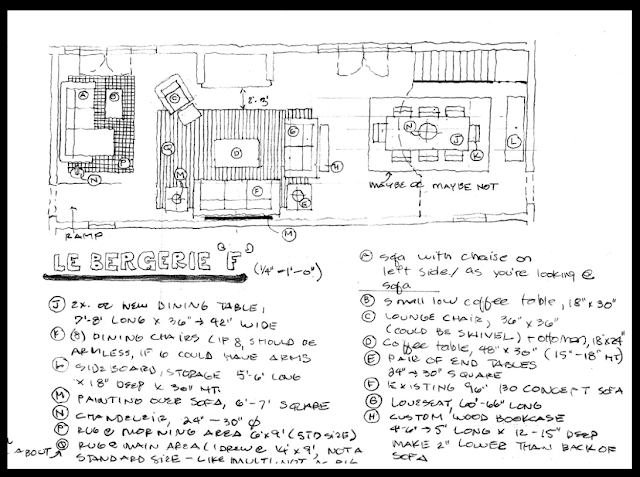 A
B
C
2'-3"
G
H
D
Q
P
N
M
F
E
M
N
J
K
L
MAYBE OR MAYBE NOT
RAMP
LE BERGERIE "F" (1/4"-1'-0")
J 2X. OR NEW DINING TABLE,
7'-8' LONG X 36" → 42" WIDE
(8) DINING CHAIRS (IF 8, SHOULD BE
ARMLESS, IF 6 COULD HAVE ARMS
L SIDEBOARD, STORAGE 5'-6' LONG
X 18" DEEP X 30" HT.
M PAINTING OVER SOFA, 6'-7' SQUARE
N CHANDELEIR, 24"-30" Ø
P RUG @ MORNING AREA 6'X9' (STD SIZE)
ABOUT Q RUG @ MAIN AREA (I DREW @ 14'X9', NOT A
STANDARD SIZE - LIKE MULTI, NOT AS BIG
A sofa with chaise on
left side/ as you're looking @
sofa
B small low coffee table, 18"X30"
C LOUNGE CHAIR, 36"X36"
(COULD BE SWIVEL) + OTTOMAN, 18"X24"
D COFFEE TABLE, 48"X30" (15"-18" HT)
E PAIR OF END TABLES
24" → 30" SQUARE
F EXISTING 96" 130 CONCEPT SOFA
G LOVESEAT, 60"-66" LONG
H CUSTOM, WOOD BOOKCASE
4'-6" → 5' LONG X 12-15" DEEP
MAKE 2" LOWER THAN BACK OF
SOFA